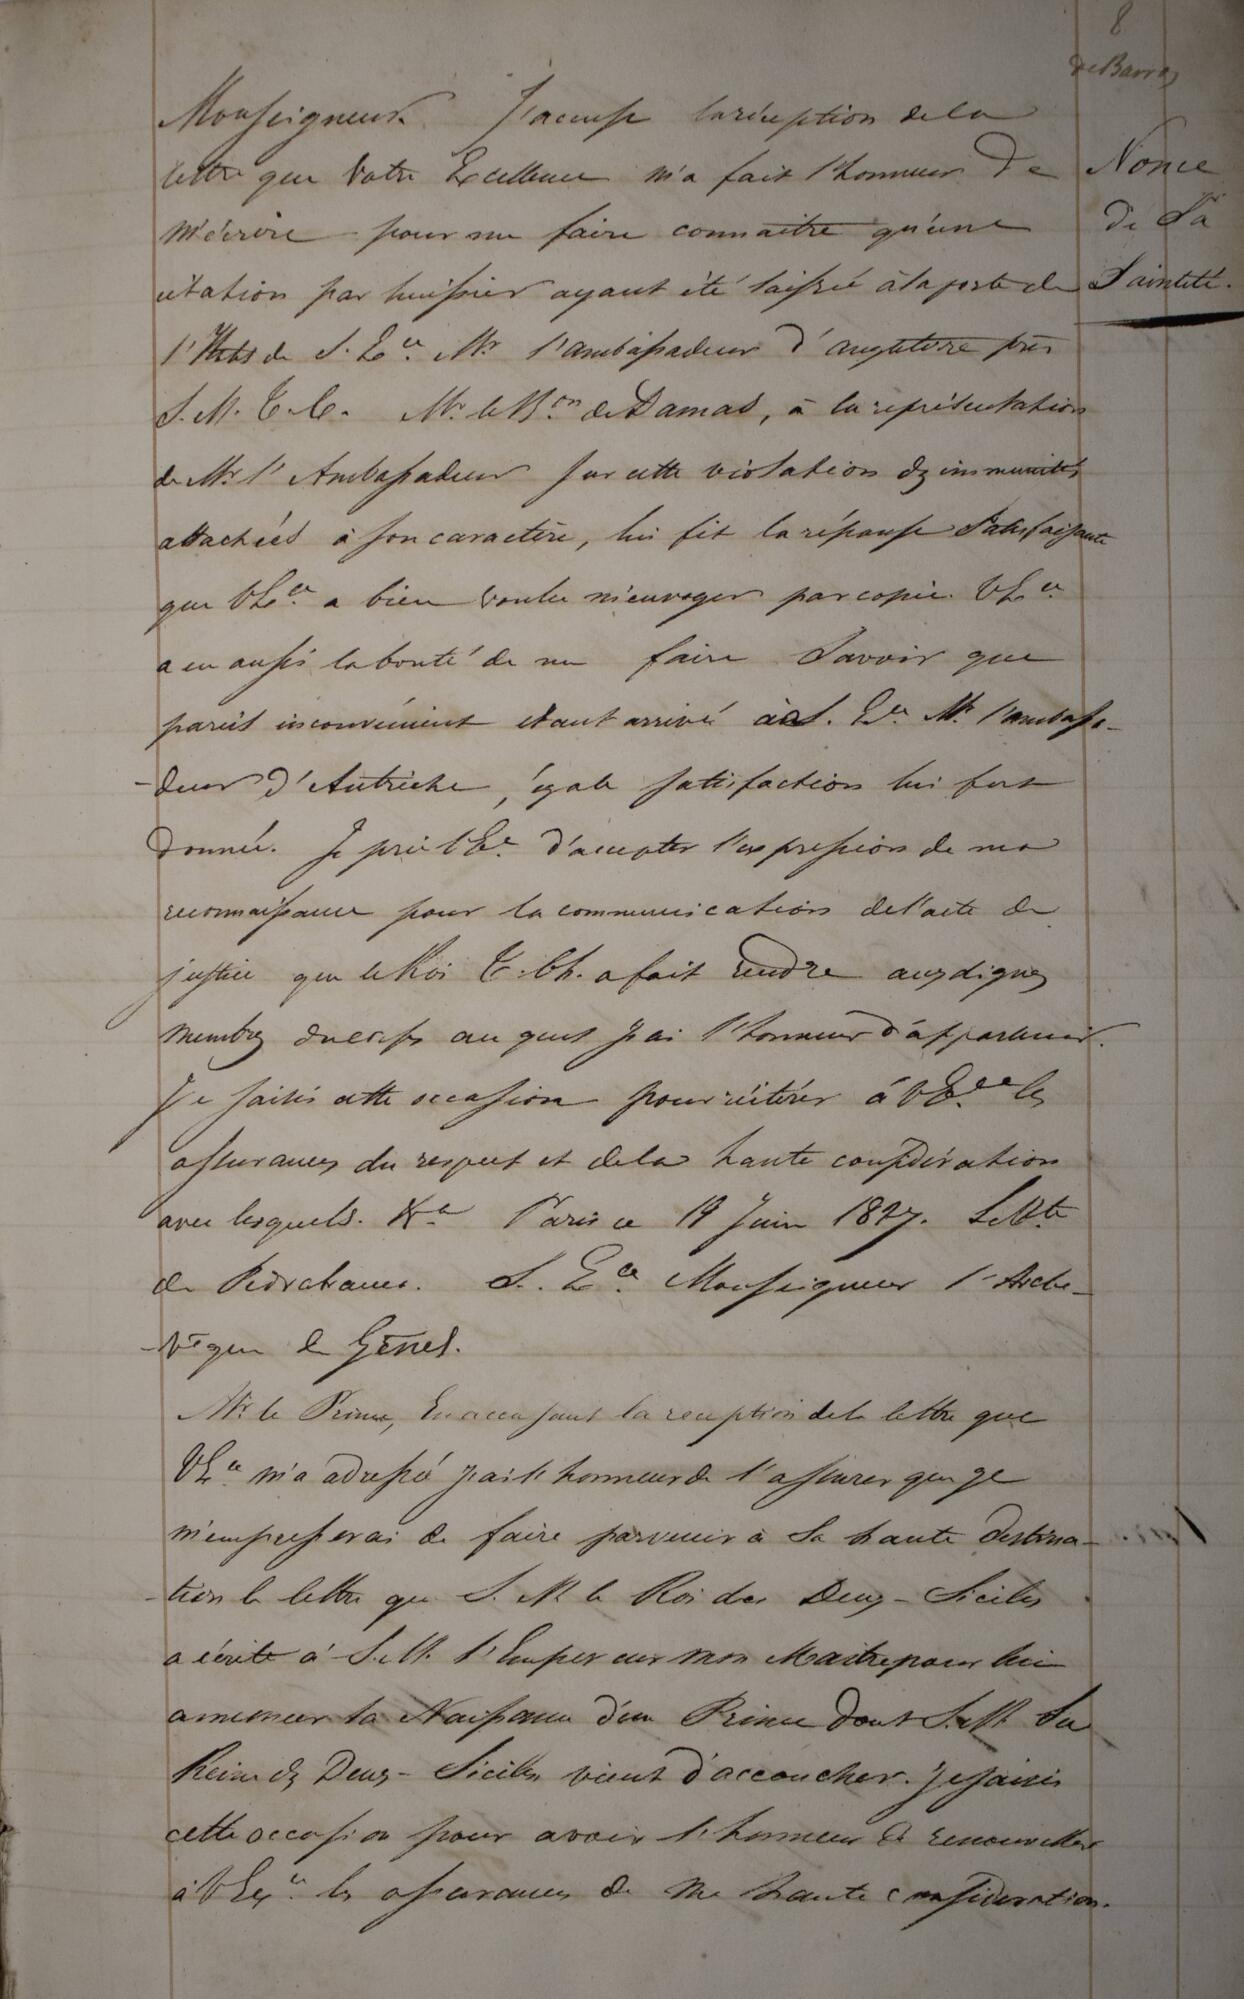 8
de Barros
Monseigneur. J'accuse la réception de la
lettre que Votre Excellence m'a fait l'honneur de
m'écrire pour me faire connaitre qu'une
citation par huissier ayant été laissée à la porte de
l'Hotel de S. Ex.ce Mr. l'ambassadeur d'angleterre près
S. M. T. C. Mr. le B.on de Damas, à la représentation
de Mr. l'Ambassadeur sur cette violation des immunités
attachées à son caractère, lui fit la réponse satisfaisante
que V Ex.ce a bien voulu m'envoyer par copie. V Ex.ce
a eu aussi la bonté de me faire savoir que
pareil inconvenient etant arrivé à S. Ex.ce Mr. l'ambassa-
-deur d'Autriche, égale satisfaction lui fut
donnée. Je prie V Ex.ce d'accepter l'expression de ma
reconnaissance pour la communication de l'acte de
justice que le Roi T. Ch. a fait rendre aux dignes
membres du corps au quel j'ai l'honneur d'appartenir.
Je saisis cette occasion pour réitérer à V Ex.ce les
assurances du respect et de la haute considération
avec lesquels. &.a Paris ce 19 Juin 1827. Le V.te
de Pedrabranca. S. Ex.ce Monseigneur l'Arche-
-vêque de Gênes.
Nonce
de Sa
Sainteté.
Mr. le Prince, En accusant la reception de la lettre que
V Ex.ce m'a adressée j'ai l'honneur de l'assurer que je
m'empresserai de faire parvenir à Sa haute destina-
-tion la lettre que S. M. le Roi des Deux-Siciles
a écrite à S. M. l'Empereur mon Maitre pour lui
annoncer la Naissance d'un Prince dont S. M. La
Reine des Deux-Siciles vient d'accoucher. Je saisis
cette occasion pour avoir l'honneur de renouveller
à V Ex.ce les assurances de ma haute consideration.